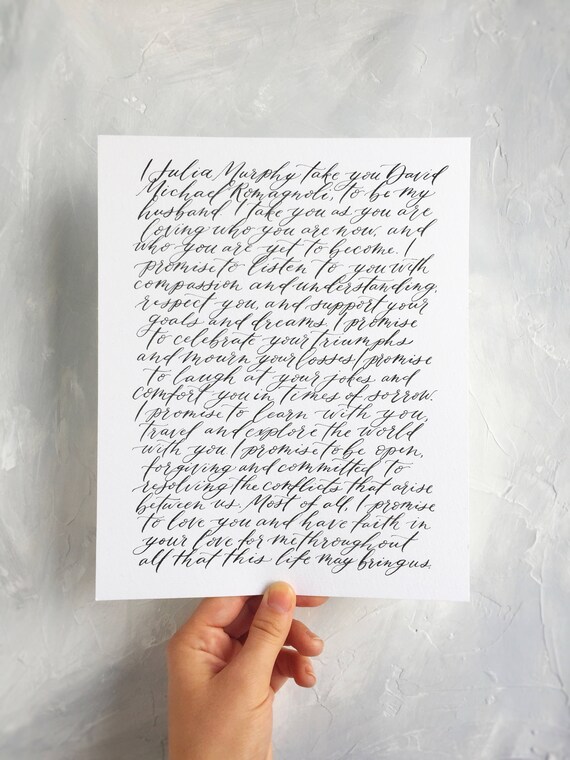 I Julia Murphy take you David
Michael Romagnoli, to be my
husband. I take you as you are
loving who you are now, and
who you are yet to become. I
promise to listen to you with
compassion and understanding,
respect you, and support your
goals and dreams. I promise
to celebrate your triumphs
and mourn your losses. I promise
to laugh at your jokes and
comfort you in times of sorrow.
I promise to learn with you,
travel and explore the world
with you. I promise to be open,
forgiving and committed to
resolving the conflicts that arise
between us. Most of all, I promise
to love you and have faith in
your love for me throughout
all that this life may bring us.